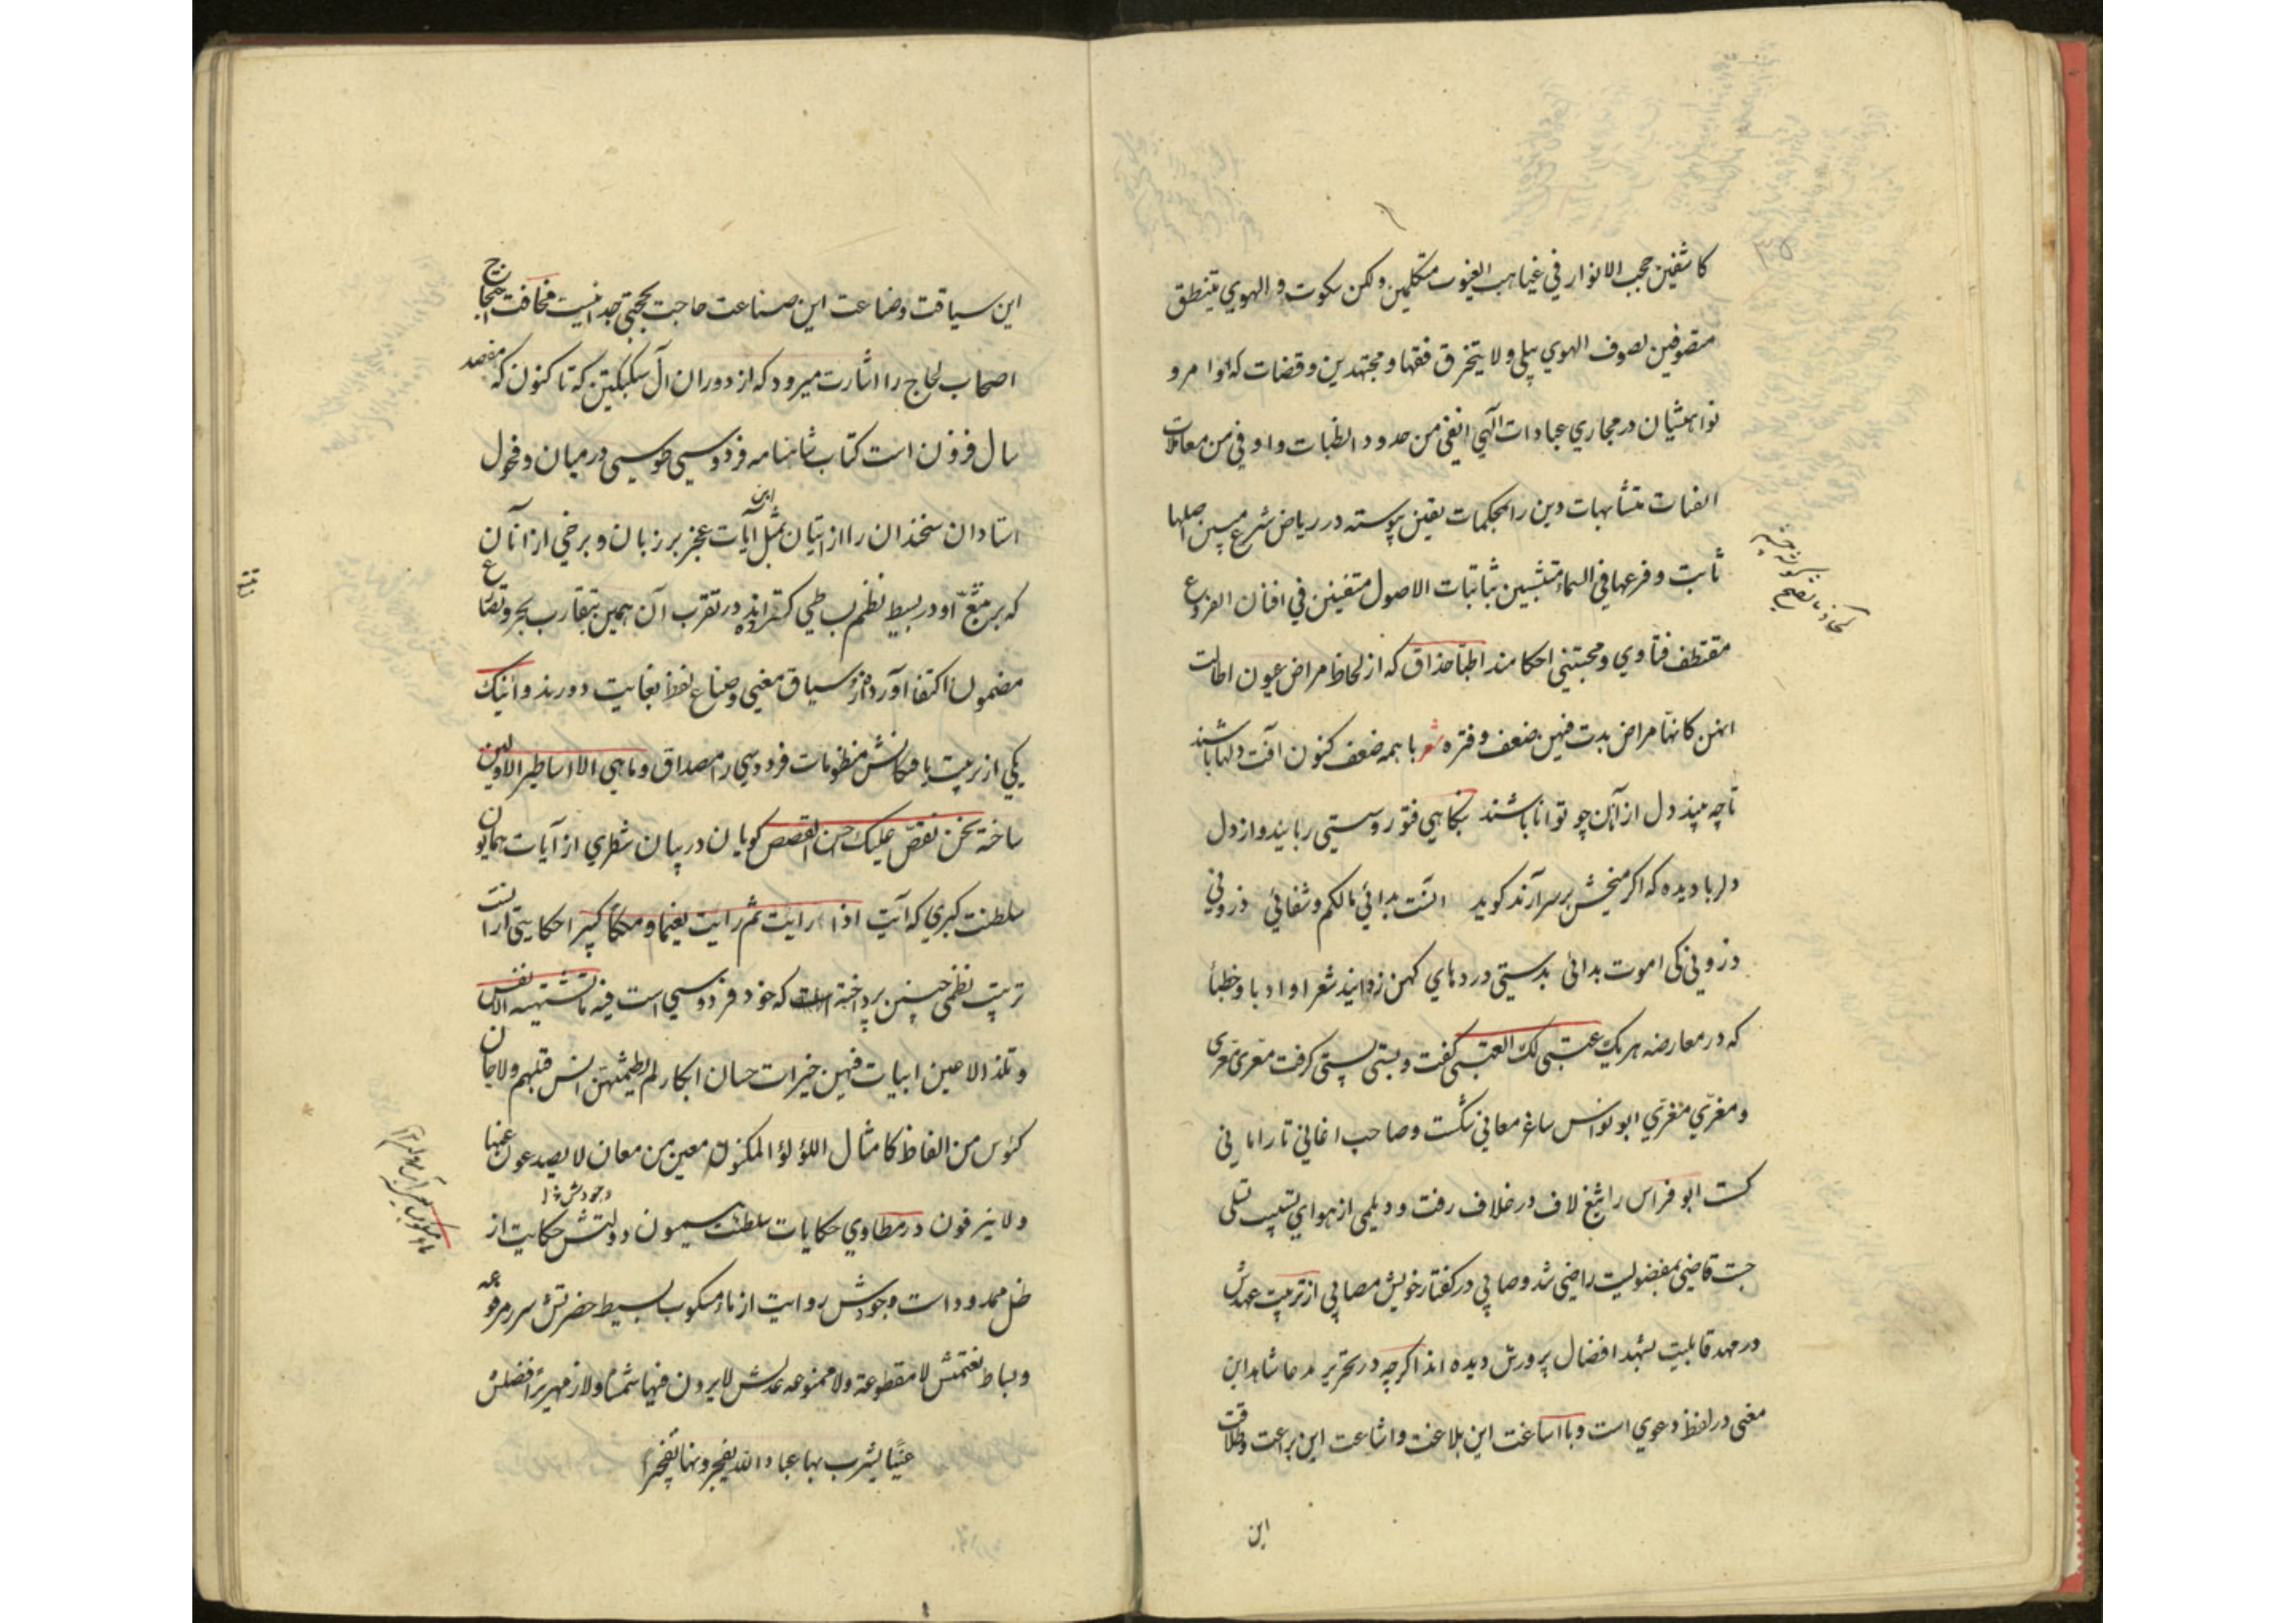 كاشفين حجب الانوار في غياهب الغيوب متكلمين ولكن بسكوت و الهوي يتنطق
متصوفين بصوف الهوي يبلي ولا يتخرق فقها و مجتهدين و قضات كه اوامر و
نواهيشان در مجاري عبادات الهي انفي من حدود الظبات و اوفي من معاملات
الفتات متشابهات دين را بمحكمات يقين پيوسته در رياض شرع مبين اصلها
ثابت و فرعها في السماء متشبثين بثابتات الاصول متفننين في افنان الفروع
مقتطف فتاوي و مجتني احكامند اطبا حذاق كه از لحاظ مراض عيون اطالت
انهن كانها مراض بدت فيهن ضعف و فتره شعر با همه ضعف كنون آفت دلها باشند
تا چه بيند دل از آن چو توانا باشند بنگاهي فتور و سستي ربايند و از دل
دلربا ديده كه اگر مسيحش بر سر آرند گويد انت بدائي مالكم و شفائي ذروني
ذروني كي اموت بدائي بدستي دردهاي كهن زدايند شعرا و ادبا و خطبا
كه در معارضه هر يك عتبي لك العتبي گفت و بستي پستي گرفت معري معري
و مغربي مغربي ابونواس ساغر معاني شكست و صاحب اغاني تارا
گست ابو فراس را تيغ لاف در غلاف رفت و ديلمي از هواي تسبيب تسلي
جست قاضي بمفضوليت راضي شد و صابي در گفتار خويش مصابي از تربيت عهدش
در مهد قابليت بشهد افضال پرورش ديده اند اگر چه در تحرير مدعا شاهد اين
معني در لفظ دعوي است و با اساغت اين بلاغت و اشاعت اين براعت و طلاقت
اين
اين سياقت و ضاعت اين صناعت حاجت بحجتي جدا نيست مخافت احتجاج
اصحاب لجاج را اشارت ميرود كه از دوران آل سبكتكين كه تا كنون كه مفصد
سال فزون است كتاب شاهنامه فردوسي طوسي در ميان و فحول
استادان سخندان را از اتيان بمثل اين آيات عجز بر زبان و برخي از آنان
كه بر تتبع او در بسيط نظم بساطي گسترانده در تقرب آن همين بتقارب بحر و تضاع
مضمون اكتفا آورده از سياق معني و صناع لفظ بغايت دورند و اينك
يكي از تربيت يافتگانش منظومات فردوسي را مصداق و ما هي الا اساطير الاولين
ساخته نحن نقص عليك احسن القصص گويان در بيان شطري از آيات همايون
سلطنت كبري كه آيت اذا رايت ثم رايت نعيما و ملكا كبيرا حكايتي از آنست
ترتيب نظمي چنين پرداخته است كه خود فردوسي است فيه ما تشتهيه الانفس
و تلذ الاعين ابيات فيهن خيرات حسان ابكار لم يطمثهن انس قبلهم ولا جان
كئوس من الفاظ كامثال اللؤلؤ المكنون معين من معان لا يصدعون عنها
ولا ينزفون در مطاوي حكايات سلطنت ميمون دولتش حكايت از
ظل ممدود است وجودش روايت از ماء مسكوب بسيط حضرتش سرر مرفوعه
و بساط نعمتش لا مقطوعة ولا ممنوعه عدلش لا يرون فيها شمسا ولا زمهريرا فضلش
عينا يشرب بها عباد الله يفجرونها تفجيرا